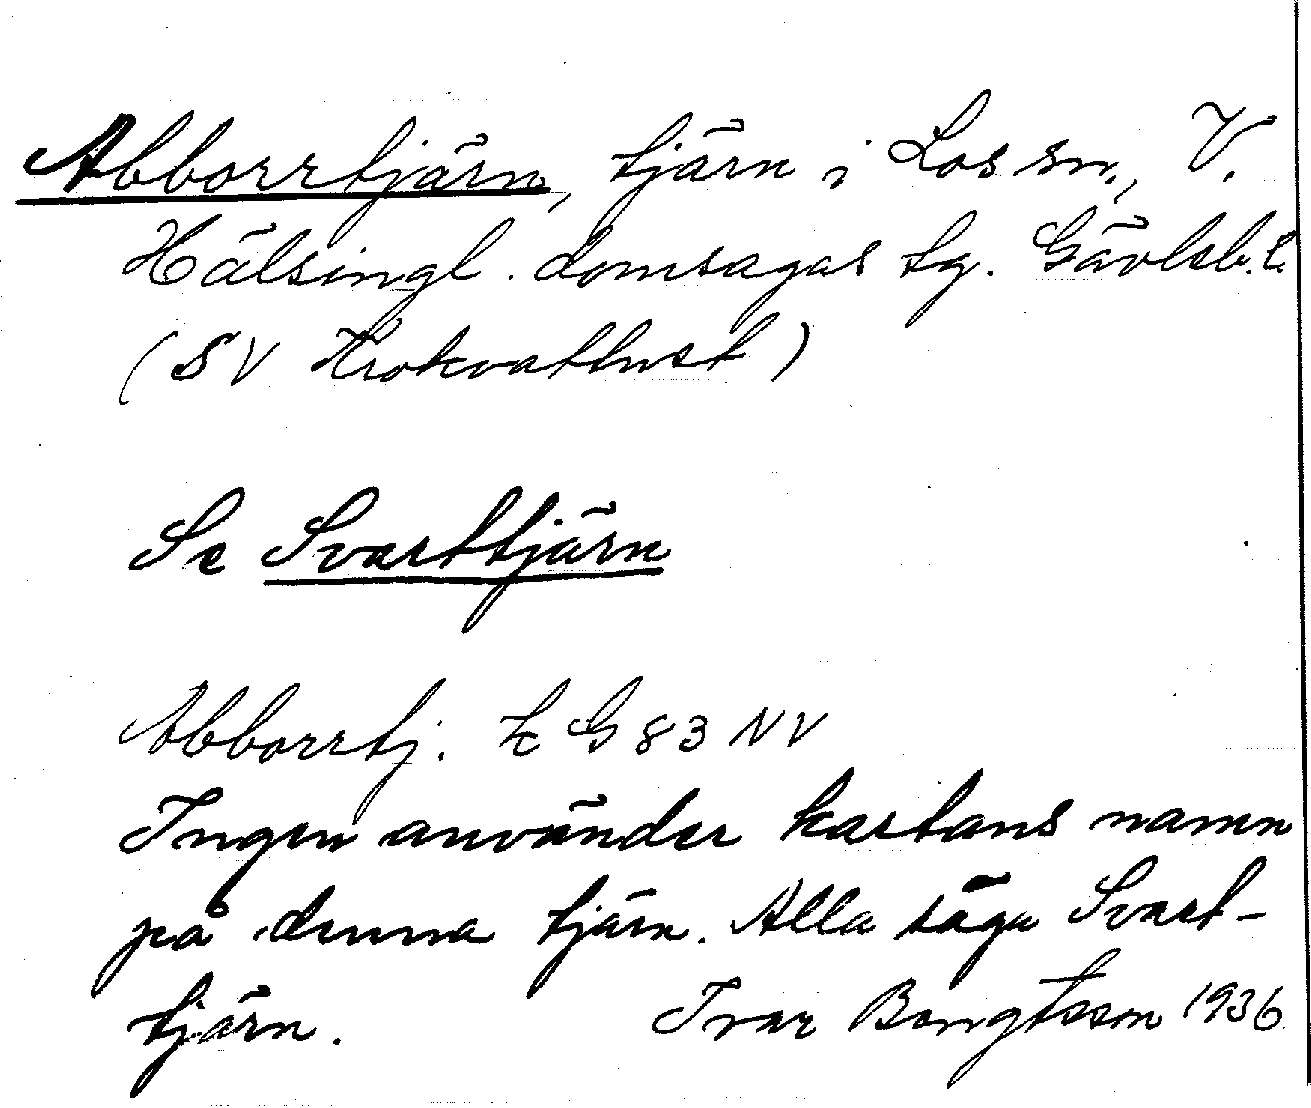 Abborrtjärn, tjärn i Los sn., V.
Hälsingl. domsagas tg. Gävleb. l.
(SV )
Se Svarttjärn
Abborrtj. G 83 NV
Ingen använder kartans namn
på denna tjärn. Alla säga Svart-
tjärn. Ivar Bengtsson 1936